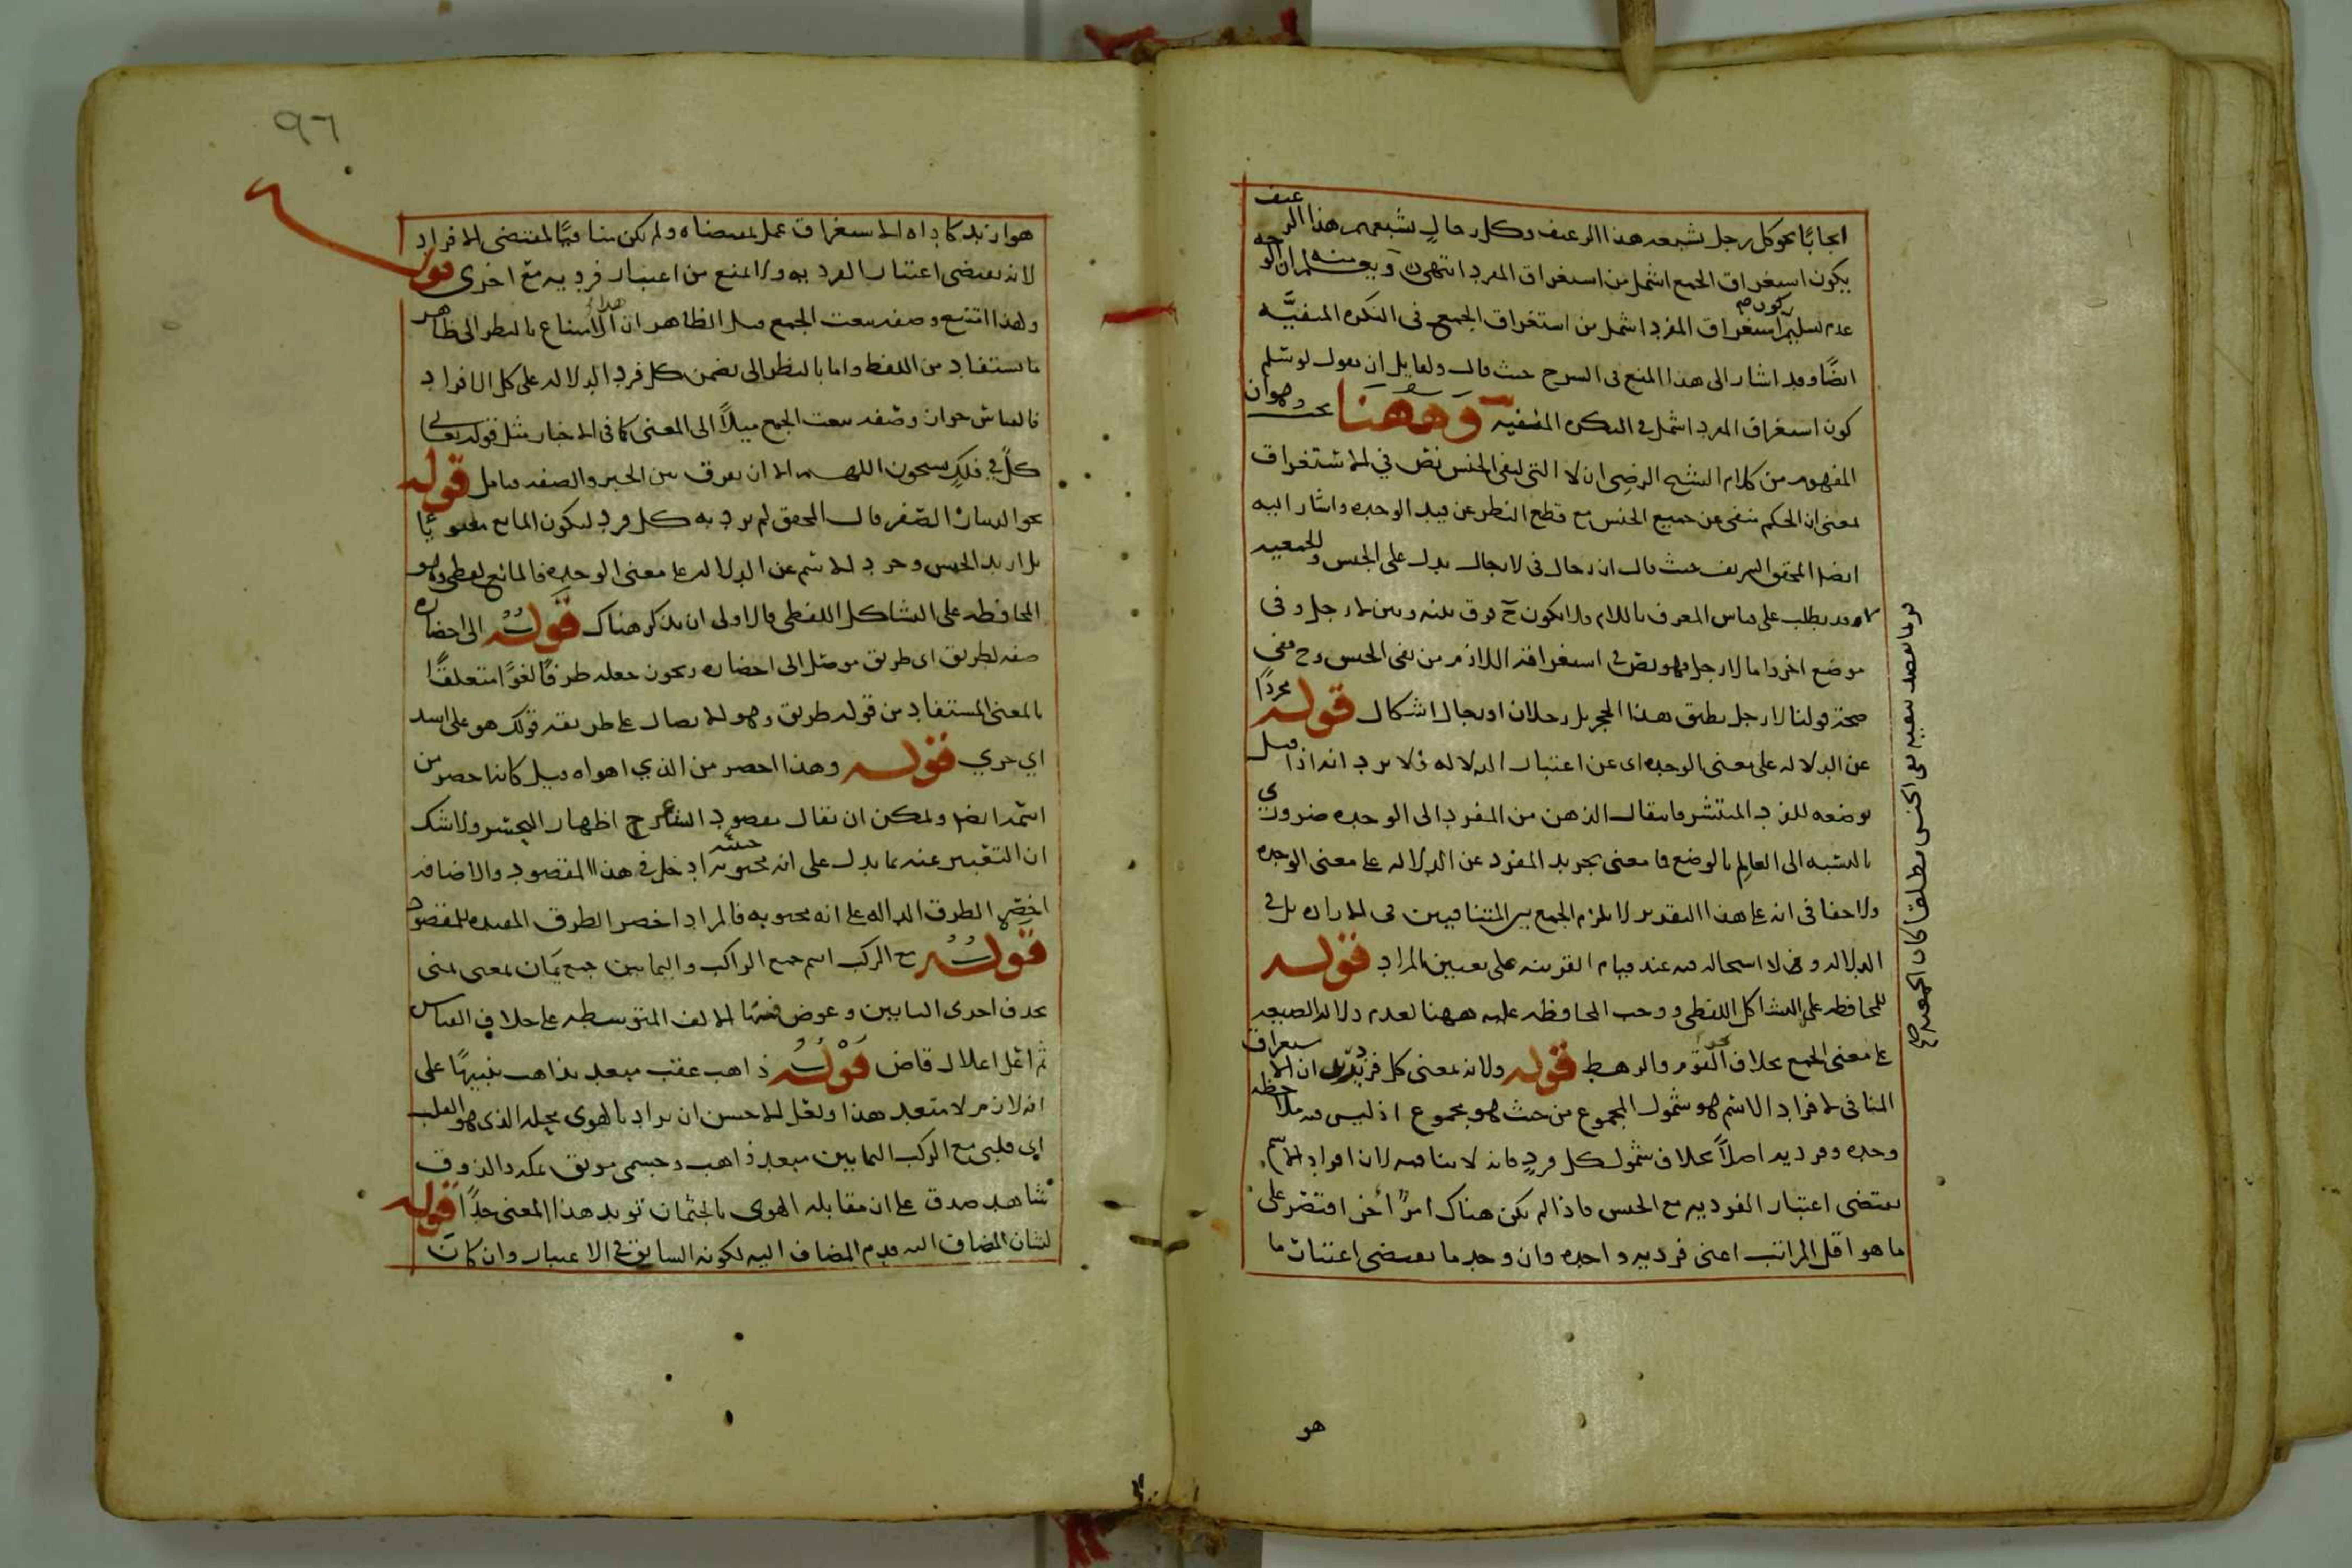 ايجابا نحو كل رجل يشبعه هذا الرغيف وكل رجال يشبعهم هذا الرغيف
يكون استغراق الجمع اشمل من استغراق المفرد انتهى ويعلم منه ان الوجه
عدم تسليم كون استغراق المفرد اشمل من استغراق الجمع في النكرة المنفيّة
ايضًا وقد اشار الى هذا المنع في الشرح حيث قال ولقايل ان يقول لو سلم
كون استغراق المفرد اشمل في النكرة المنفية وَهٰهُنَا بحث وهو ان
المفهوم من كلام الشيخ الرضي ان لا التي لنفي الجنس نص في الاستغراق
بمعنى ان الحكم منفي عن جميع الجنس مع قطع النظر عن قيد الوحدة واشار اليه
ايضا المحقق الشريف حيث قال ان رجال في لا رجال يدل على الجنس والجمعية
وقد يطلب على قياس المعرف باللام ولا يكون ح فرق بينه وبين لا رجل وفي
موضع اخر واما لا رجل فهو نص في استغراقه اللازم من نفي الجنس وح ففي
صحة قولنا لا رجل يطيق هذا الحجر بل رجلان او رجال اشكال قوله مجردًا
عن الدلالة على معنى الوحدة اى عن اعتبار الدلالة فلا يرد انه اذا قيل
بوضعه للفرد المنتشر فانتقال الذهن من المفرد الى الوحدة ضرورى
بالنسبه الى العالم بالوضع فما معنى تجريد المفرد عن الدلالة على معنى الوحدة
ولا خفا في انه على هذا التقدير لا يلزم الجمع بين المتنافيين في الارادة بل في
الدلالة وهذا لا استحالة فيه عند قيام القرينه على تعيين المراد قوله
للمحافظة على التشاكل اللفظي ووجب المحافظة عليه ههنا لعدم دلالة الصيغه
على معنى الجمع بخلاف القوم والرهط قوله ولانه بمعنى كل فرد يريد ان الاستغراق
المنافي لافراد الاسم هو شمول المجموع من حيث هو مجموع اذ ليس فيه ملاحظة
وحدة وفردية اصلاً بخلاف شمول كل فردٍ فانه لا ينافيه لان افراد الاسم
يقتضى اعتبار الفردية مع الجنس فاذا لم يكن هناك امرٌ آخر اقتصر على
ما هو اقل المراتب اعنى فردية واحدة وان وجد ما يقتضى اعتبار ما
هو
هو ازيد كاداة الاستغراق عمل بمقتضاه ولم يكن منافيًا لمقتضى الافراد
لانه يقتضى اعتبار الفردية ولا امنع من اعتبار فرديه مع اخرى قوله
ولهذا امتنع وصفه بنعت الجمع قيل الظاهر ان هذا الامتناع بالنظر الى ظاهر
ما يستفاد من اللفظ واما بالنظر الى تضمن كل فرد الدلالة على كل الافراد
فالقياس جواز وصفه بنعت الجمع ميلاً الى المعنى كما في الاخبار مثل قوله تعالى
كلٌ في فلكٍ يسبحون اللهم الا ان يفرق بين الخبر والصفه تامل قوله
نحو الدينار الصفر قال المحقق لم يرد به كل فرد ليكون المانع معنويًا
بل اريد الجنس وجرد الاسم عن الدلالة على معنى الوحدة فالمانع لفظي وهو
المحافظة على التشاكل اللفظي فالاولى ان يذكر هناك قوله الى احضاره
صفه لطريق اى طريق موصل الى احضاره ويجوز جعله ظرفًا لغوًا متعلقًا
بالمعنى المستفاد من قوله طريق وهو الايصال على طريقه قولك هو على اسد
اي جري قوله وهذا اخصر من الذي اهواه قيل كانه احصر من
اسمه ايضا ويمكن ان يقال مقصود الشاعر ح اظهار التحسر ولا شك
ان التعبير عنه بما يدل على انه محبوبه ادخل في هذا المقصود والاضافه
اخصر الطرق الدالة على انه محبوبه فالمراد اخصر الطرق المفيده للمقصود
قوله مع الركب اسم جمع الراكب واليمانين جمع يمان بمعنى يمنى
بحذف احدى اليايين وعوض عنها الالف المتوسطه على خلاف القياس
ثم اعل اعلال قاض قوله ذاهب عقب مبعد بذاهب تنبيهًا على
انه لازم لا متعد هذا ولعل الاحسن ان يراد بالهوى محله الذى هو القلب
اى قلبي مع الركب اليمانين مبعد ذاهب وجسمي موثق بمكه والذوق
شاهد صدق على ان مقابله الهوى بالجثمان تويد هذا المعنى جدًا قوله
لشان المضاف اليه قدم المضاف اليه لكونه السابق في الاعتبار وان كان
٩٦